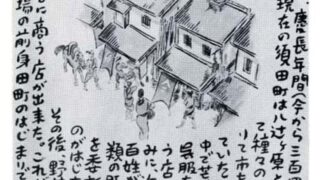 慶長年間(今から三百四
現在の須田町は八辻ヶ原と
て種々の
りて市を
ていた
中でせ
呉服
う店
みに、
百姓が
類の町
を委
のがはじ
その後、野
に商う店が出来た。これが
場の前身田町のはじまりで